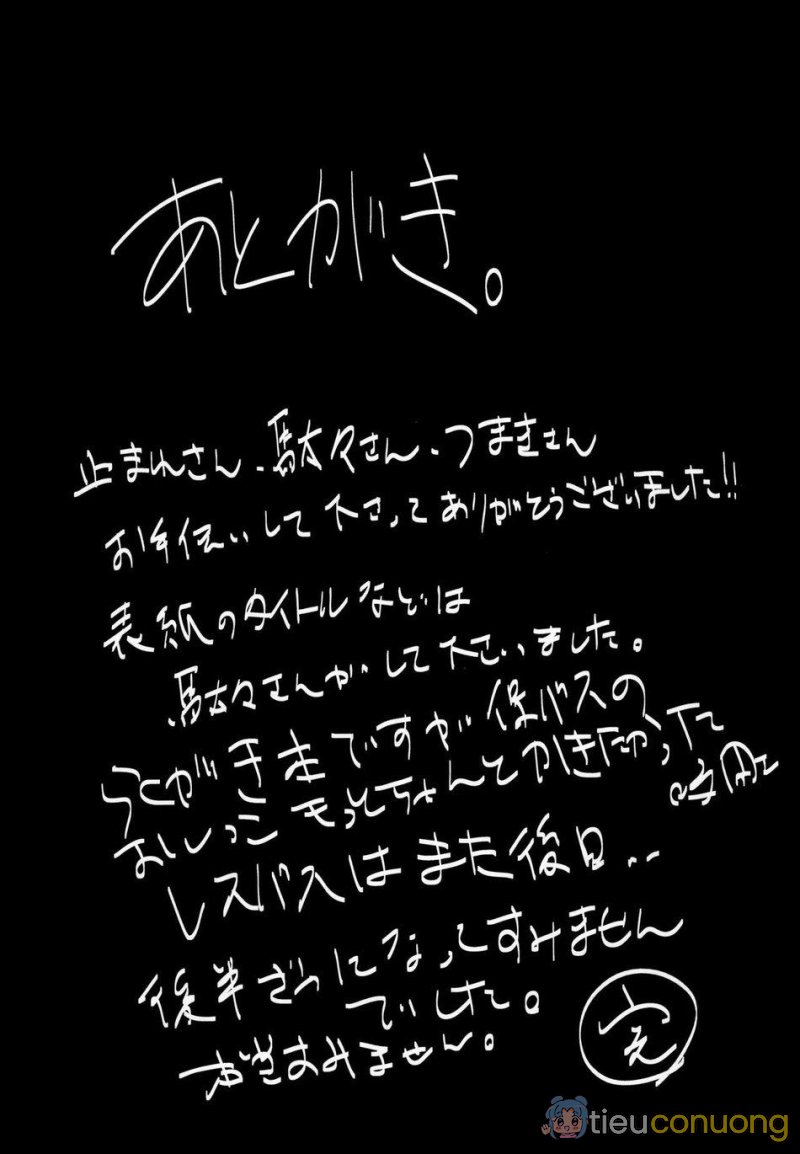 あとがき。
止まれさん、駄々さん、つまきさん
お手伝いして下さってありがとうございました!!
表紙のタイトルなどは
駄々さんがして下さいました。
らくがき本ですが保バスの
おしっこもっとちゃんとかきたかった
レスバスはまた後日..
後半ざつになってすみません
でした。
本当すみません。
完
tieuconuong